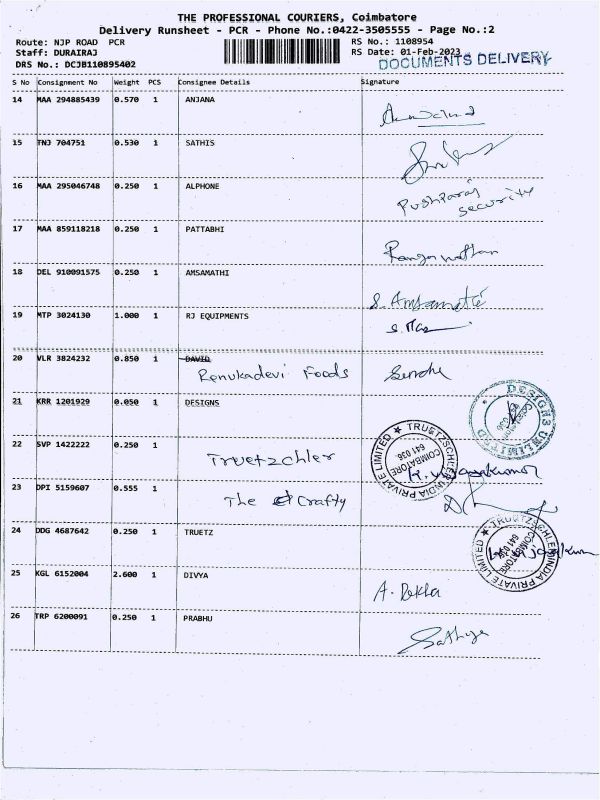 THE PROFESSIONAL COURIERS, Coimbatore
Delivery Runsheet - PCR - Phone No.:0422-3505555 - Page No.:2
Route: NJP ROAD PCR
RS No.: 1108954
Staff: DURAIRAJ
RS Date: 01-Feb-2023
DOCUMENTS DELIVERY
DRS No.: DCJB110895402
S No Consignment No Weight PCS Consignee Details Signature
14 MAA 294885439 0.570 1 ANJANA
15 TNJ 704751 0.530 1 SATHIS
16 MAA 295046748 0.250 1 ALPHONE Pushparaj
security
17 MAA 859118218 0.250 1 PATTABHI
18 DEL 910091575 0.250 1 AMSAMATHI
19 MTP 3024130 1.000 1 RJ EQUIPMENTS
20 VLR 3824232 0.850 1 DAVID
Renukadevi Foods
21 KRR 1201929 0.050 1 DESIGNS
DESIGNS UNLIMITED
22 SVP 1422222 0.250 1 Truetzchler
TRUETZSCHLER INDIA PRIVATE LIMITED
COIMBATORE
641 036
23 DPI 5159607 0.555 1 The Crafty
24 DDG 4687642 0.250 1 TRUETZ
TRUETZSCHLER INDIA PRIVATE LIMITED
COIMBATORE
641 036
25 KGL 6152004 2.600 1 DIVYA A. Rekha
26 TRP 6200091 0.250 1 PRABHU Sathya